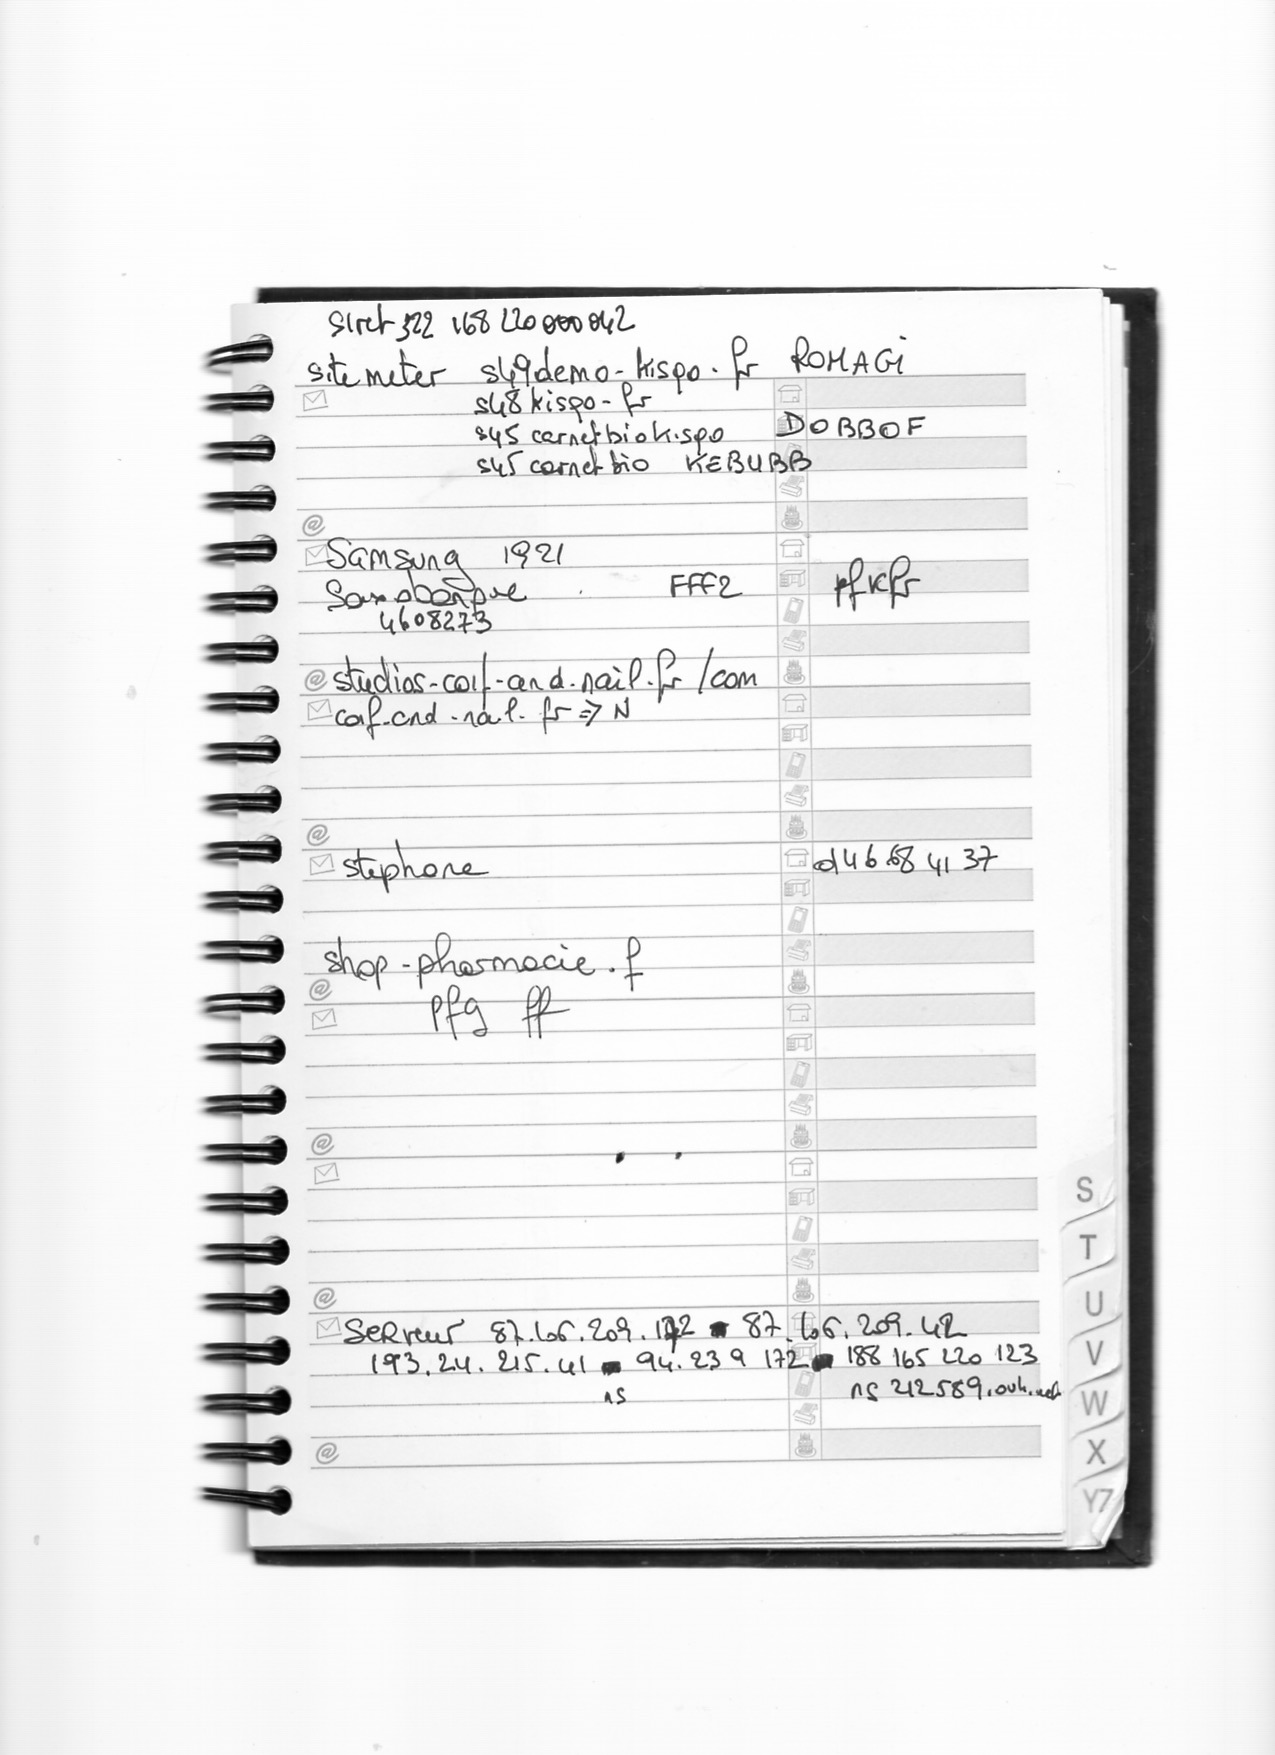 Siret 322 168 220 000 042
site meter s49demo-kispo.fr ROMAGI
s48kispo-fr
s45 carnetbiokispo DOBBOF
s45 carnetbio KEBUBB
Samsung 1921
FFF2 pfkfr
4608273
@ studios-coif-and-nail.fr /com
coif-and-nail.fr => N
stephane 0146 68 41 37
shop-pharmacie.f
pfg ff
Serveur 87.106.209.172 - 87.106.209.42
193.24.215.41 - 94.239 172 - 188 165 220 123
ns ns 212589.ovh.net
@
S
T
U
V
W
X
YZ